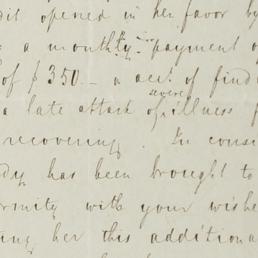 dit opened in her favor by
a monthly payment o
of $350 – a acct. of find
a late attack of severe illness f
recovering. In consi
dy has been brought to
ormity with your wishe
ing her this additiona